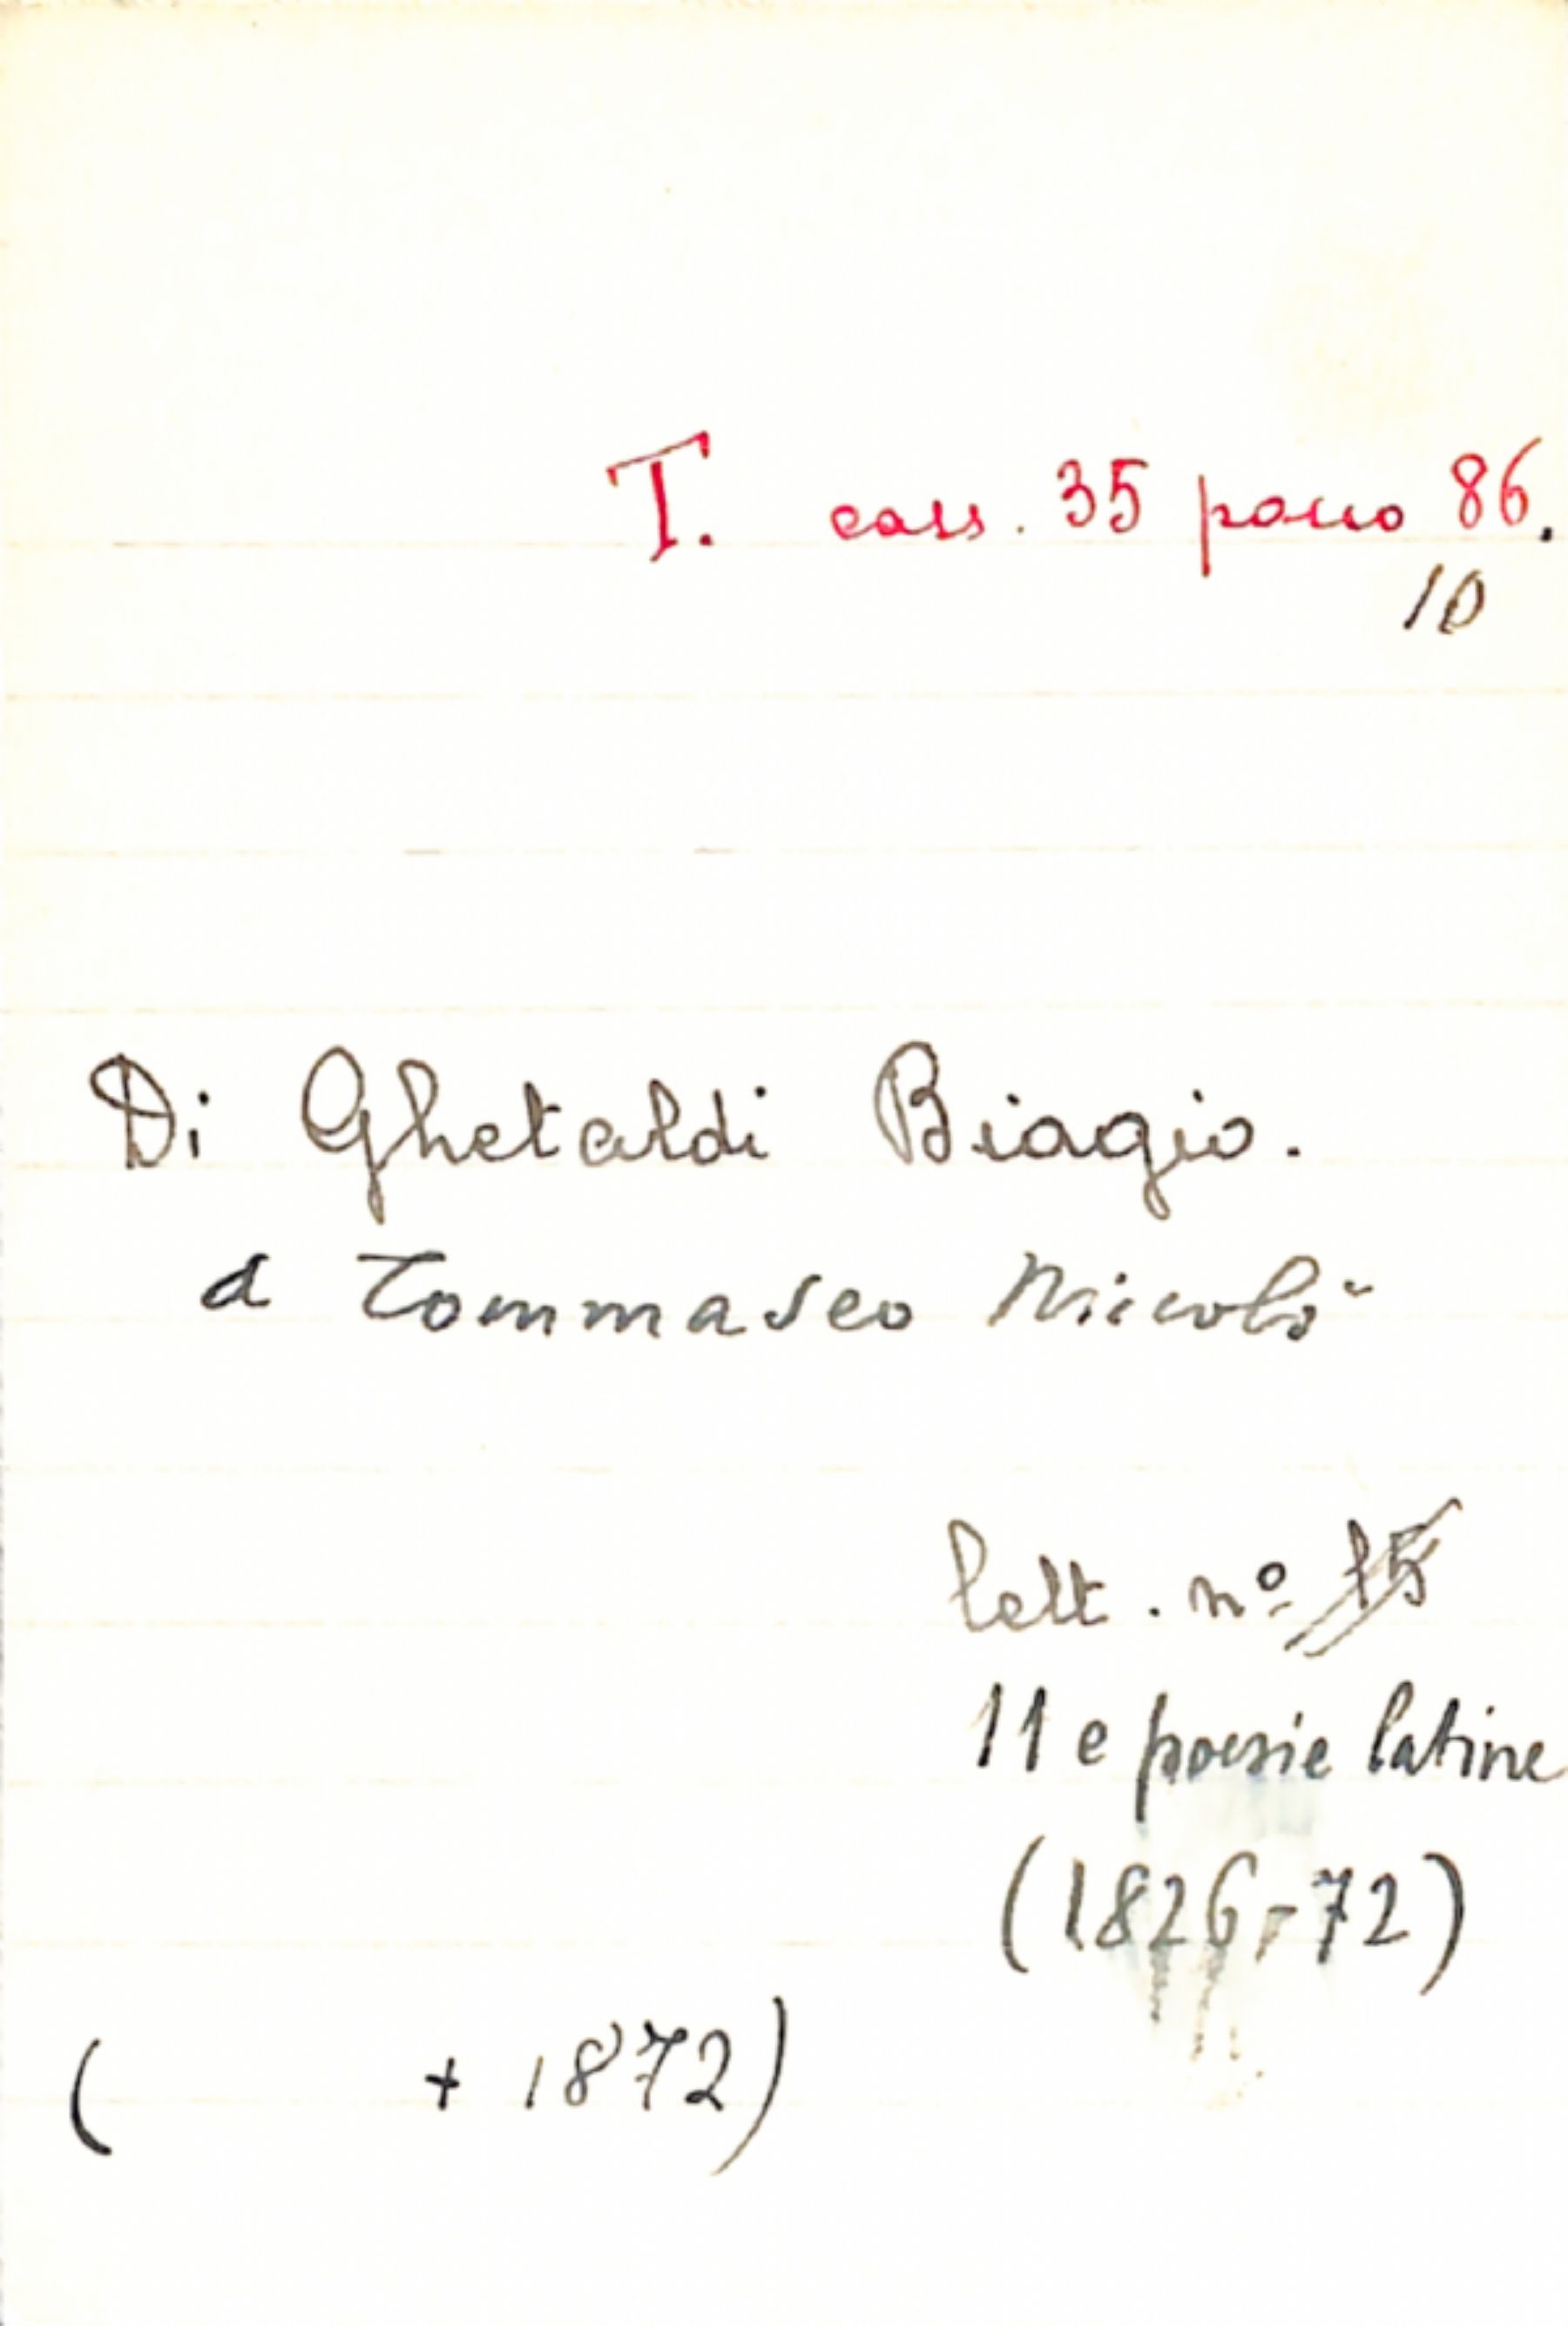 T. cass. 35 pacco 86.
10
Di Ghetaldi Biagio.
a Tommaseo Niccolò
lett. nº 15
11 e poesie latine
(1826-72)
( + 1872)